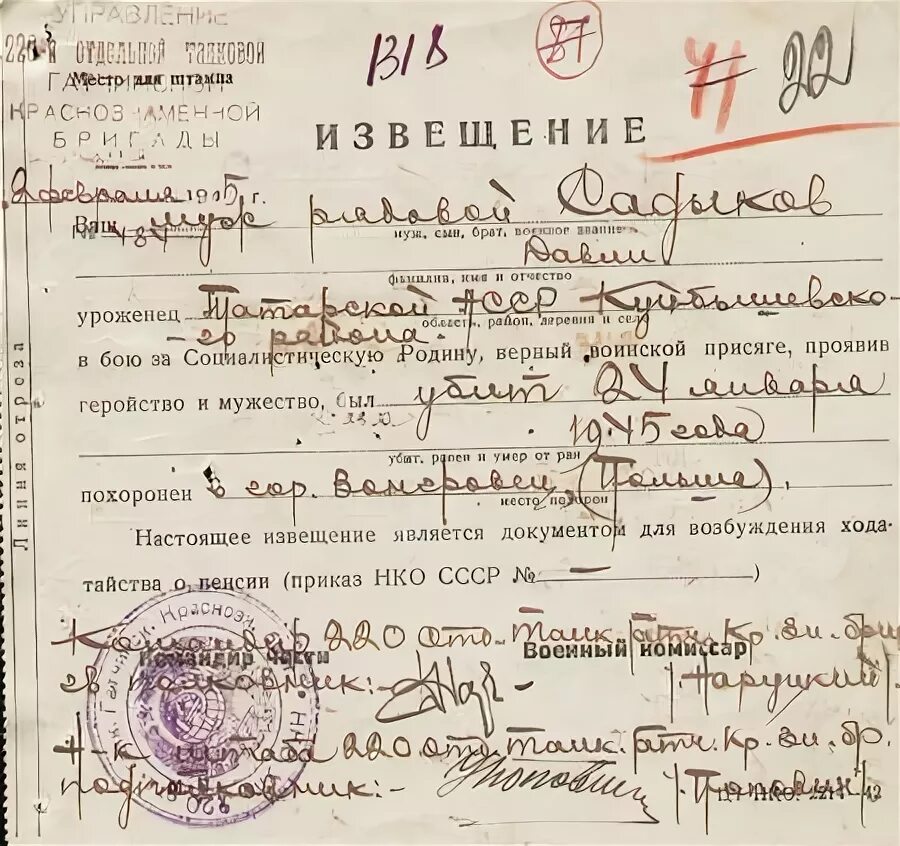 УПРАВЛЕНИЕ
220-й ОТДЕЛЬНОЙ ТАНКОВОЙ
Место для штампа
КРАСНОЗНАМЕННОЙ
БРИГАДЫ
1318
87
71 22
ИЗВЕЩЕНИЕ
февраля 1945 г.
Ваш муж рядовой Садыков
муж, сын, брат, военное звание
Давли
фамилия, имя и отчество
уроженец Татарской АССР Куйбышевско-
область, район, деревня и село
-го района.
в бою за Социалистическую Родину, верный воинской присяге, проявив
геройство и мужество, был убит 24 января
1945 года
убит, ранен и умер от ран
похоронен в гор. (Польша),
место похорон
Настоящее извещение является документом для возбуждения хода-
тайства о пенсии (приказ НКО СССР № — )
Линия отреза
Командир 220 отд. Танк. Гтч. Кр. Зн. бриг
Командир части Военный комиссар
гв полковник:- /Наруцкий/
Н-к штаба 220 отд. Танк. Гтч. Кр. Зн. бр.
подполковник:- /Попович/